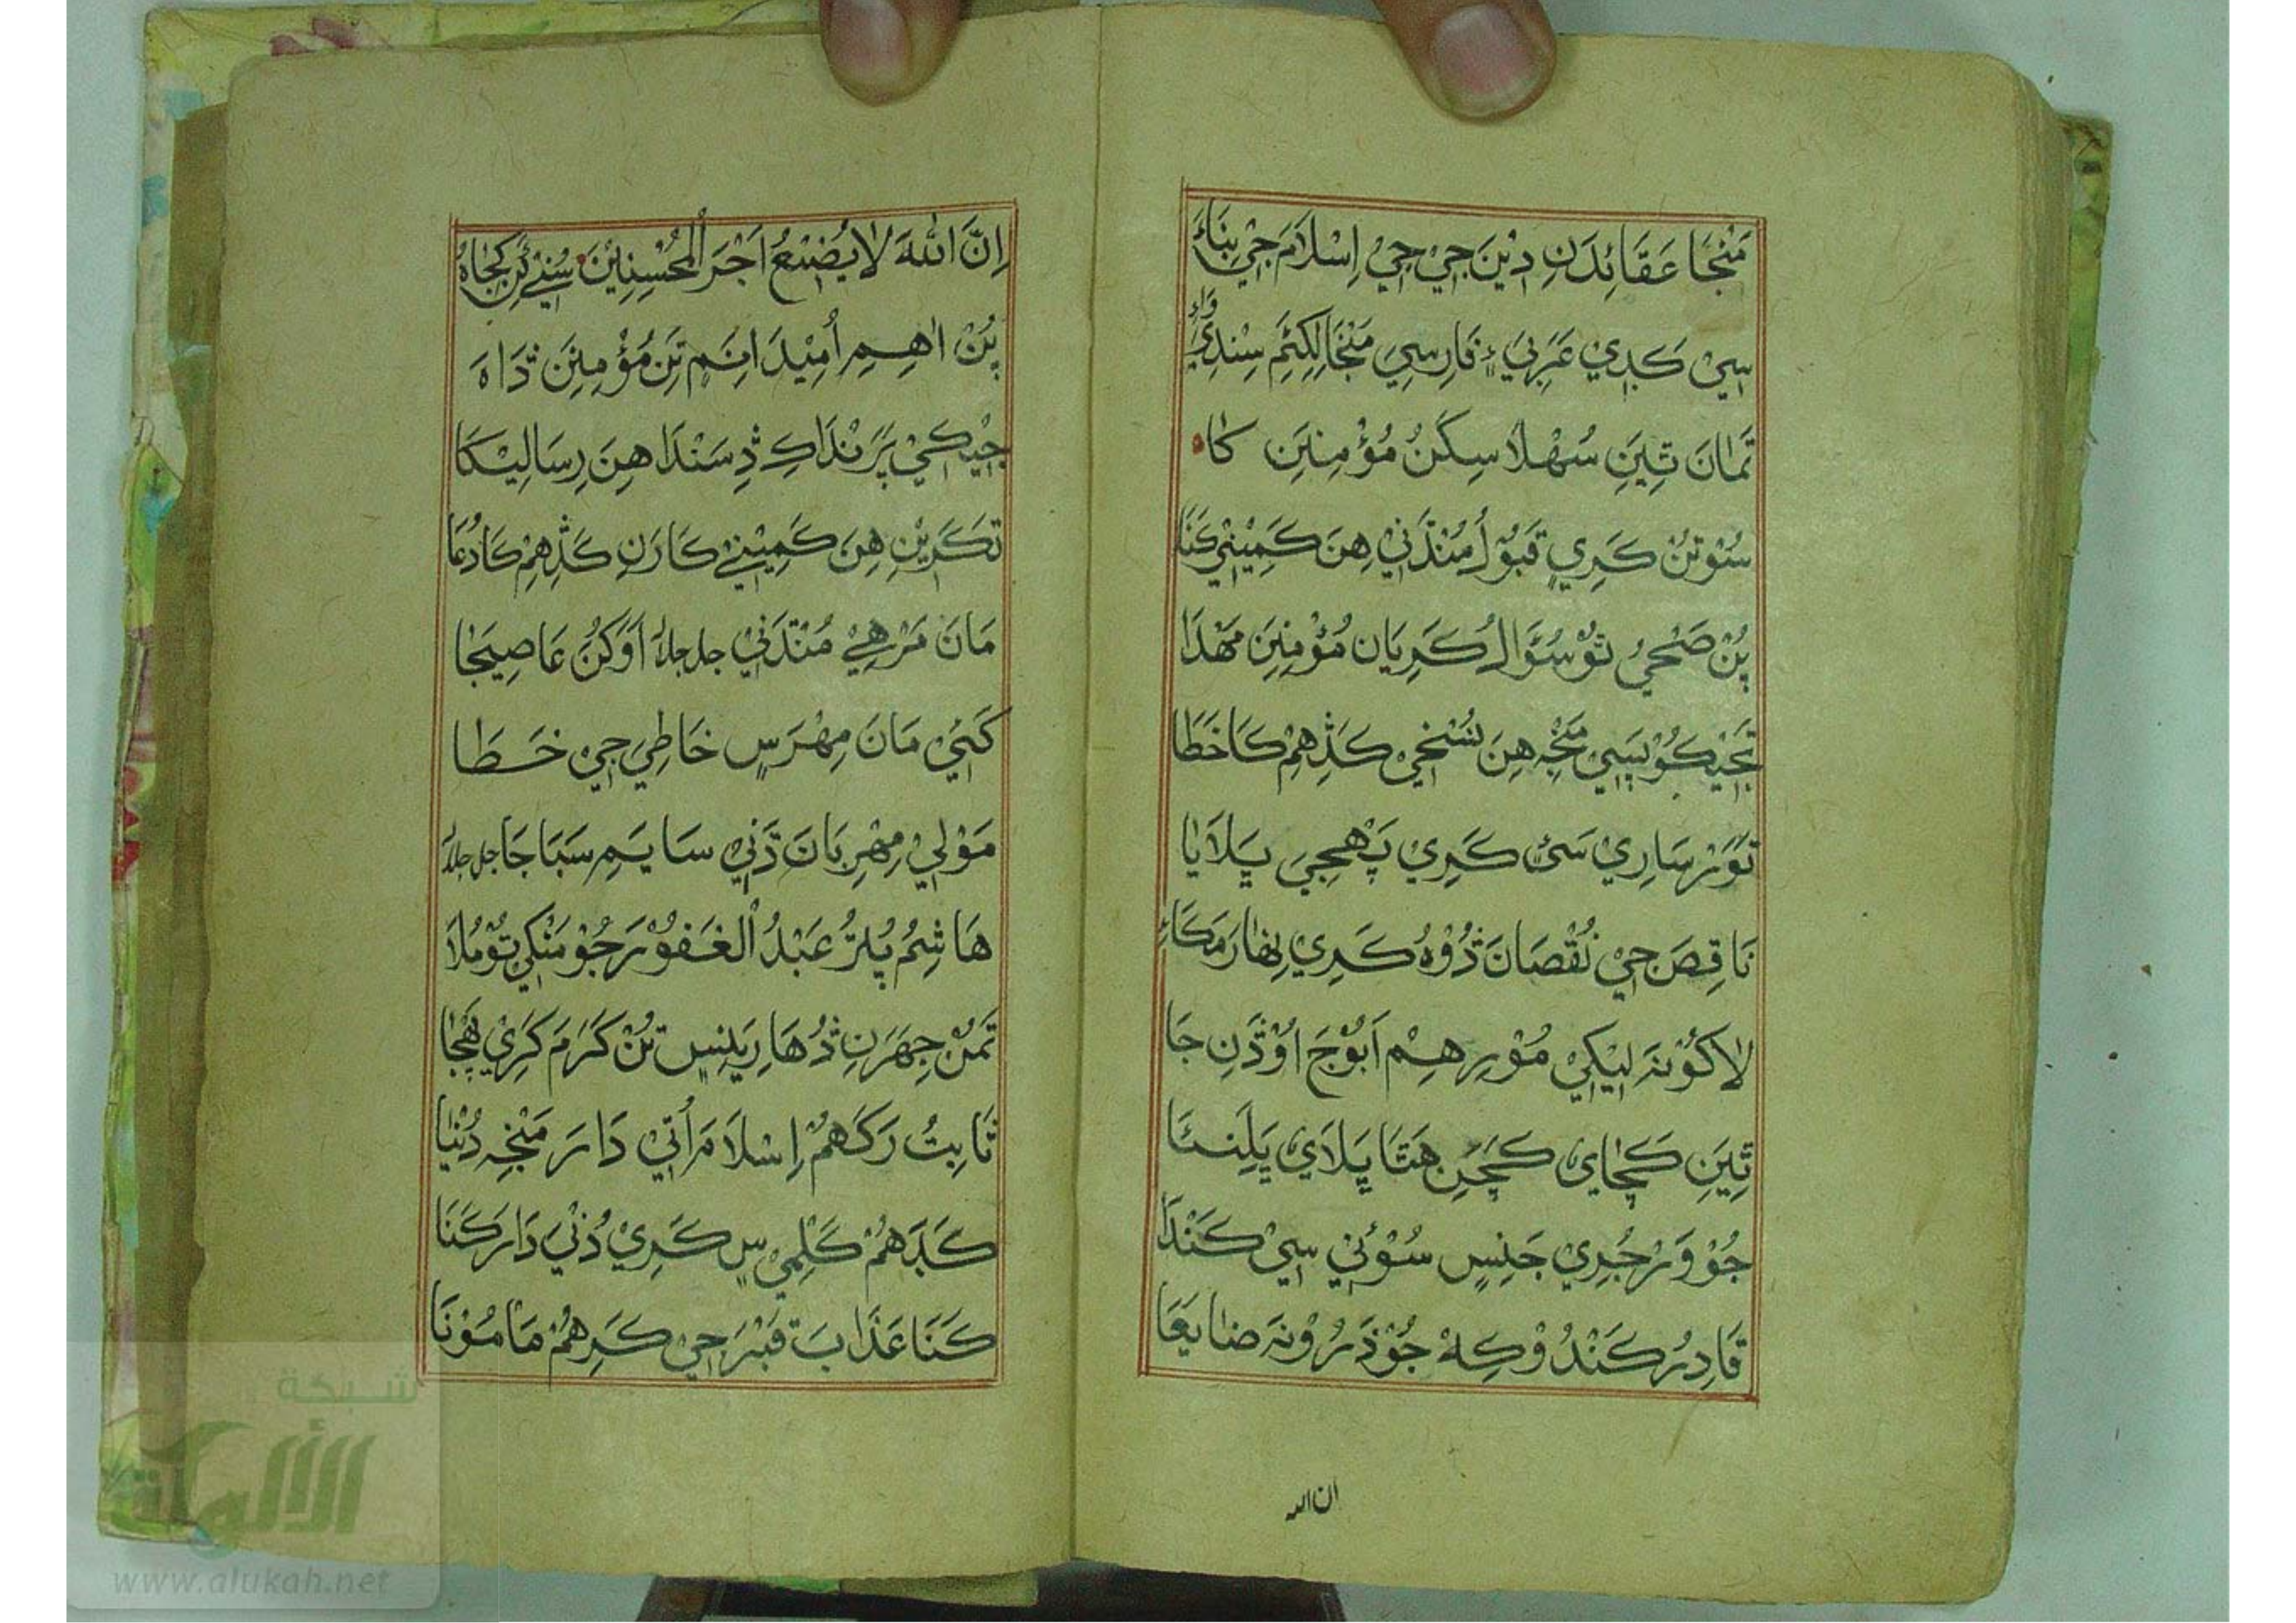 مَنْجَا عَقَائِدَنِ دِيْنَ جِيْ جِيْ اِسْلَامَ جِيْ بِنَاءَ
سِيْ كَدِيْ عَرَبِيَ فَارِسِيَ مَنْجَا لِكِئَمِ سِنْدِيْ وَاءِ
تَمَانَ تِيَنِ سُهْلَا سِكَنُ مُؤْمِنِيَنِ كَا
سُوْتُنْ كَرِيْ قَبُوْلُ مُنْدَنِيْ هِنَ كَمِيْنِيْ كَنَا
پُنْ صَحْحِيُ تُوْ سُؤَالُ كَرِيَانِ مُؤْمِنِيَنِ مَهْدَا
هِنَ نُسْخِيْ كَڎِهِمْ كَا خَطَا
تَوَرْ سَارِيْ سَئ كَرِيْ پَهْجِيَ پَلَايَا
نَاقِصَ جِيْ نُقْصَانَ ڎُوْهُ كَرِيْ نِهَارَمَ كَاءِ
لَاكُوْنَہ لِيْكِيْ مُوْرِهِمْ اَبُوْجَ اُوْڎَنِ جَا
تِيَنِ كَچَايْ كَچَنِ هَتَا پَلَايْ پَلِئَا
جُوْوَرْ جُرِيْ جَنِسِ سُوْئِيْ سِيْ كَنْدَا
قَادِرُ كَنْدُوْ كِهْ جُوْ ذَرُوْنَہ ضَايَعَا
ان الله
اِنَّ اللّٰهَ لَا يُضِيْعُ اَجْرَ الْمُحْسِنِيْنَ
پُنْ اٰهِمِ اُمِيْدَ اِنَمِ تِنِ مُؤْمِنِيَنِ ڎَاهَ
جِيْكِيْ پَرَنْدَا كِ ڎِسَنْدَا هِنَ رِسَالِيْكَا
تَكَرِيْنِ هِنَ كَمِيْنِيْ كَارَنِ كَڎِهِمْ كَا دُعَا
مَانَ مَرْهِيْ مُنْدَنِيْ جل جلاله اَوْكَنُ عَاصِيَجَا
كَنِيْ مَانَ مِهْرَسِ خَاطِيَ جِيْ خَطَا
مَوْلِيْ مِهْرِبَانَ ڎَنِيْ سَايَمِ سَبَاجَا جل جلاله
هَاشِمُ پُٽُرُ عَبْدُ الْغَفُوْرَ جُوْ مَنْكِيْ تُوْ مُلَا
تَمُنْ جِهَرَنِ ڎُهَارِيَنِسِ تُنْ كَرَمَ كَرِيْ
ثَابِتُ رَكَهُمْ اِسْلَامَ اُتِيْ دَارَ مَنْجِہ دُنْيَا
كَڎَهُمْ كَلِمِيْ سِ كَرِيْ دُنْيَ دَارَ كَنَا
كَنَا عَذَابَ قَبْرَ جِيْ كَرِهُمْ مَامُوْنَا
شبكة
الألوكة
www.alukah.net